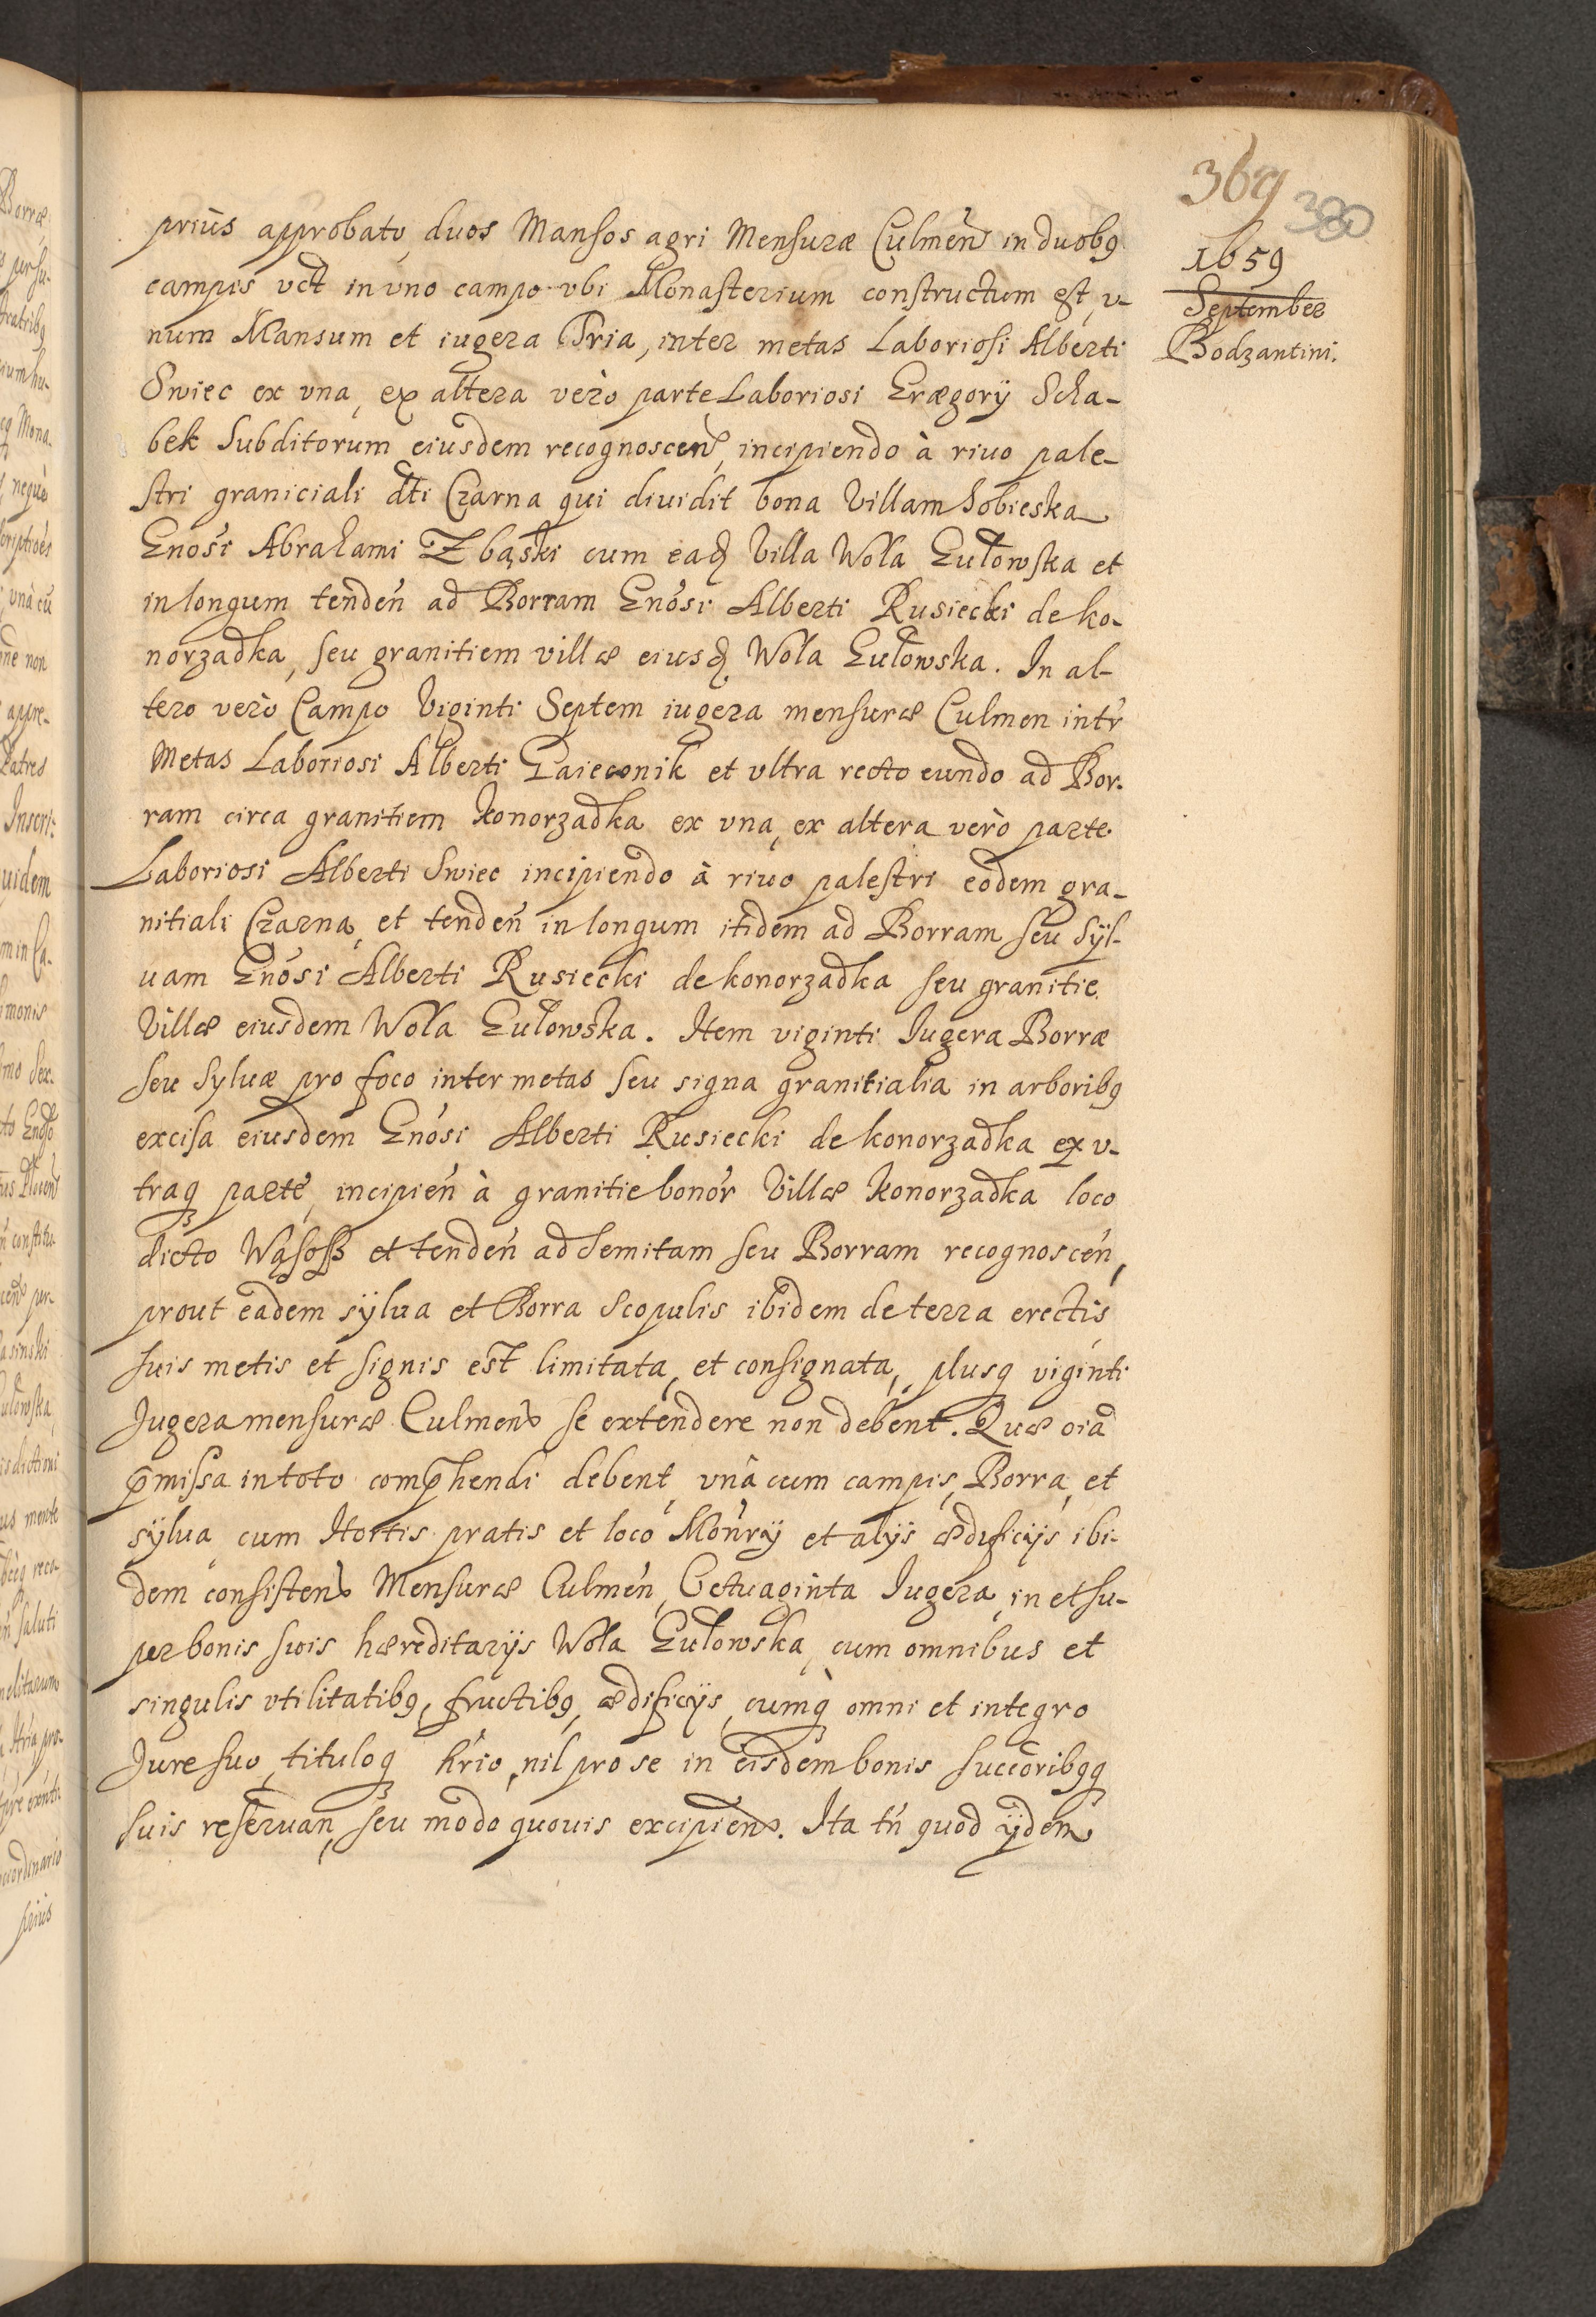 369
380
1659
September
Bodzantini.
priùs approbato, duos Mansos agri Mensuræ Culmeñ in duobꝫ
campis vct in vno campo vbi Monasterium constructum est, v-
num Mansum et iugera Tria, inter metas Laboriosi Alberti
Swiec ex vna, ex altera verò parte Laboriosi Grægorÿ Scha-
bek Subditorum eiusdem recognoscen, incipiendo à riuo pale-
stri graniciali dti Czarna qui diuidit bona Villam Sobieska
Gnosi Abrahami Zbąski cum eadꝫ Villa Wola Gułowska et
in longum tendeñ ad Borram Gnosi Alberti Rusiecki de Ko-
norzadka, seu granitiem villæ eiusdꝫ Wola Gułowska. In al-
tero verò Campo Viginti Septem iugera mensuræ Culmen intr
Metas Laboriosi Alberti Gaieconik et vltra recto eundo ad Bor-
ram circa granitiem Konorzadka ex vna, ex altera verò parte
Laboriosi Alberti Swiec incipiendo à riuo palestri eodem gra-
nitiali Czarna, et tendeñ in longum itidem ad Borram seu Syl-
uam Gnosi Alberti Rusiecki de Konorzadka seu granitie
Villæ eiusdem Wola Gułowska. Item viginti Iugera Borræ
seu Syluæ pro foco inter metas seu signa granitialia in arboribꝫ
excisa eiusdem Gnosi Alberti Rusiecki de Konorzadka ex v-
traqꝫ parte, incipieñ à granitie bonor Villæ Konorzadka loco
dicto Wąsosß et tendeñ ad Semitam seu Borram recognosceñ,
prout eadem sÿlua et Borra Scopulis ibidem de terra erectis
suis metis et signis est limitata, et consignata, plusqꝫ viginti
Jugera mensuræ Culmens se extendere non debent. Quæ oia
p̃missa in toto comp̃hendi debent, vnà cum campis, Borra, et
sÿlua, cum Hortis pratis et loco Monrÿ et alÿs ædificÿs ibi-
dem consisten Mensuræ Culmeñ, Octuaginta Jugera, in et su-
per bonis suis hæreditarÿs Wola Gułowska, cum omnibus et
singulis vtilitatibꝫ, fructibꝫ, ædificÿs, cumqꝫ omni et integro
Jure suo, tituloqꝫ hrio, nil pro se in eisdem bonis succoribꝫqꝫ
suis reseruan, seu modo quouis excipien. Ita tñ quod ÿdem